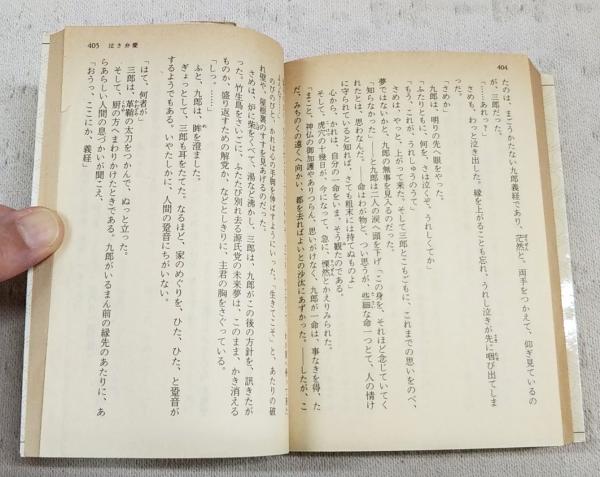 404
たのは、まごうかたない九郎義経であり、茫然と、両手をつかえて、仰ぎ見ているの
が、三郎だった。
「……あれっ?」
さめも、わっと泣き出した。縁を上がることも忘れ、うれし泣きが先に咽び出てしま
った。
「さめか」
九郎は、明りの先へ眼をやった。
「ふたりともに、何を、さは泣くぞ、うれしくてか」
「もう、これが、うれしゅうのうて」
さめは、やっと、上がって来た。そして三郎とこもごもに、これまでの思いをのべ、
夢ではないかと、九郎の無事を見入るのだった。
「知らなかった」――と九郎は二人の涙へ頭を下げ「この身を、それほど念じていてく
れたとは、思わなんだ。――命はわが物と、つい思うが、些細な命一つとて、人の情け
に守られていると知れば、さても粗末には持てぬものよ」
心から、かれは、自分の一命をいま、そう観たのである。
そして、虎穴の十幾日が、今になって、急に、慄然とかえりみられた。
「まこと、神仏の御加護やありつらん、思いがけなく、九郎が一命は、事なきを得、た
だ、みちのくの遠くへ向かい、都を去ればよいとの沙汰にあずかった。――したが、こ
405 泣き弁慶
のびのびと、かれは心の手腕を伸ばすようにいった。「生きてこそ」と、あたりの破
れ壁や、屋根裏のすすを見あげるのだった。
さめは、炉に柴をくべて、湯など沸かし、三郎は、九郎がこの後の方針を、訊きたが
った。竹生島をさいごに、ふたたび別れ去る源氏党の未来夢は、このまま、かき消える
ものか、盛り返すための解党か、などとしきりに、主君の胸をさぐっている。
「しっ……」
ふと、九郎は、眸を澄ました。
ぎょっとして、三郎も耳をたてた。なるほど、家のめぐりを、ひた、ひた、と跫音が
するようでもある。いやたしかに、人間の跫音にちがいない。
「はて、何者が」
三郎は、革鞘の太刀をつかんで、ぬっと立った。
そして、厨の方へまわりかけたときである。九郎がいるまん前の縁先のあたりに、あ
らあらしい人間の息づかいが聞こえ、
「おうっ、ここにか、義経」